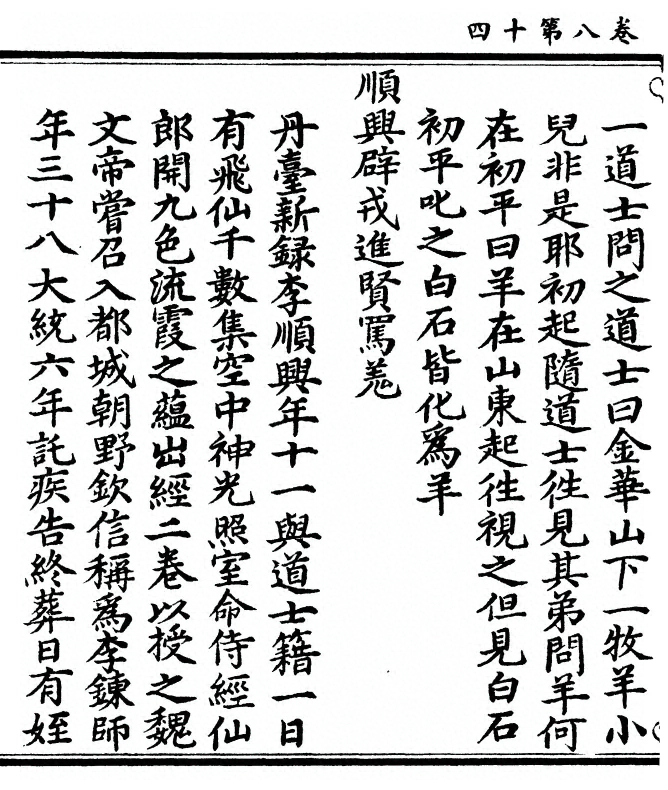 卷八第十四
一道士問之道士曰金華山下一牧羊小
兒非是耶初起隨道士徃見其弟問羊何
在初平曰羊在山東起徃視之但見白石
初平叱之白石皆化爲羊
順興辟戎進賢罵羌
丹臺新録李順興年十一與道士籍一日
有飛仙千數集空中神光照室命侍經仙
郎開九色流霞之蘊出經二卷以授之魏
文帝嘗召入都城朝野欽信稱爲李鍊師
年三十八大統六年託疾告終葬日有姪